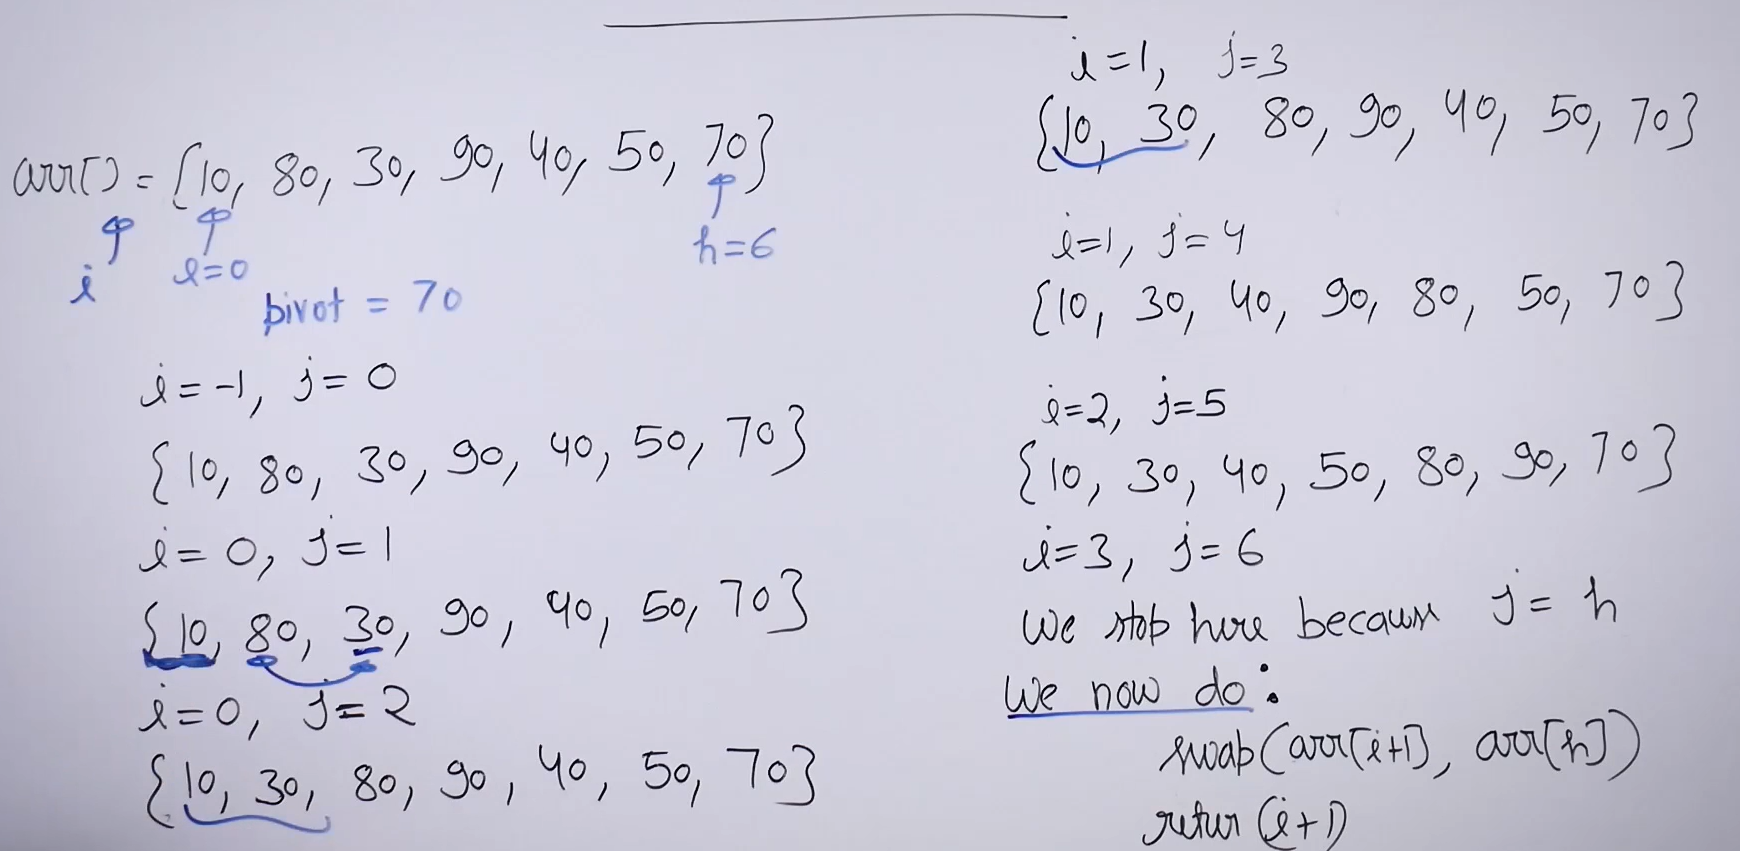 arr[] = {10, 80, 30, 90, 40, 50, 70}
i
l=0
h=6
pivot = 70
i=-1, j=0
{10, 80, 30, 90, 40, 50, 70}
i=0, j=1
{10, 80, 30, 90, 40, 50, 70}
i=0, j=2
{10, 30, 80, 90, 40, 50, 70}
i=1, j=3
{10, 30, 80, 90, 40, 50, 70}
i=1, j=4
{10, 30, 40, 90, 80, 50, 70}
i=2, j=5
{10, 30, 40, 50, 80, 90, 70}
i=3, j=6
We stop here because j=h
We now do:
swap(arr[i+1], arr[h])
retur (i+1)